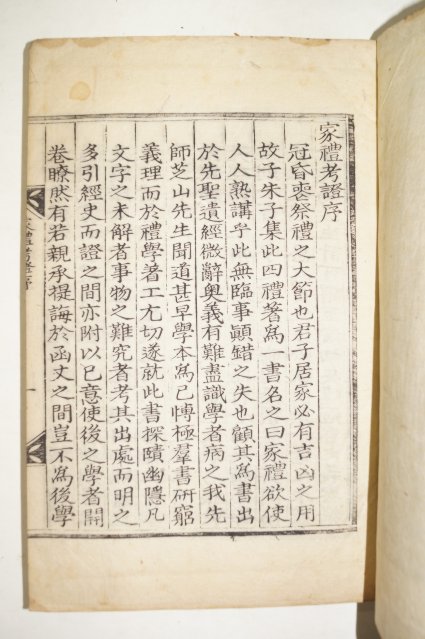 家禮考證序
冠昏喪祭禮之大節也君子居家必有吉凶之用
故子朱子集此四禮著爲一書名之曰家禮欲使
人人熟講乎此無臨事顚錯之失也顧其爲書出
於先聖遺經微辭奧義有難盡識學者病之我先
師芝山先生聞道甚早學本爲己愽極羣書硏窮
義理而於禮學著工尤切遂就此書探賾幽隱凡
文字之未解者事物之難究者考其出處而明之
多引經史而證之間亦附以已意使後之學者開
卷瞭然有若親承提誨於函丈之間豈不爲後學
家禮考證序